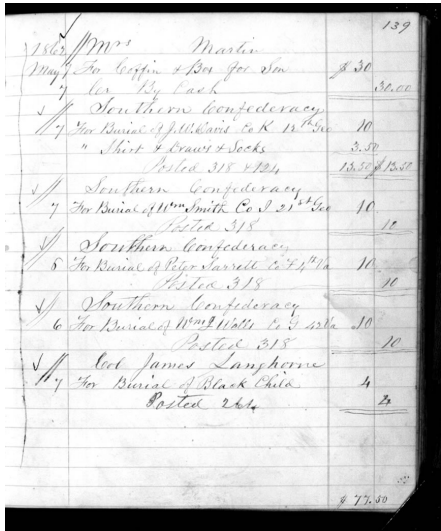 139
1862 Mrs Martin
May 7 For Coffin & Box for Son $ 30
7 Cr By Cash 30.00
Southern Confederacy
7 For Burial of J.W. Davis Co K 12th Geo 10
" Shirt & Draws & Socks 3.50
Posted 318 & 124 13.50 $13.50
Southern Confederacy
7 For Burial of Wm Smith Co I 21st Geo 10
Posted 318 10
Southern Confederacy
6 For Burial of Peter Jarrett Co F 4th Va 10
Posted 318 10
Southern Confederacy
6 For Burial of Watts Co G 42 Va 10
Posted 318 10
Col James Langhorne
7 For Burial of Black Child 4
Posted 264 4
$ 77.50